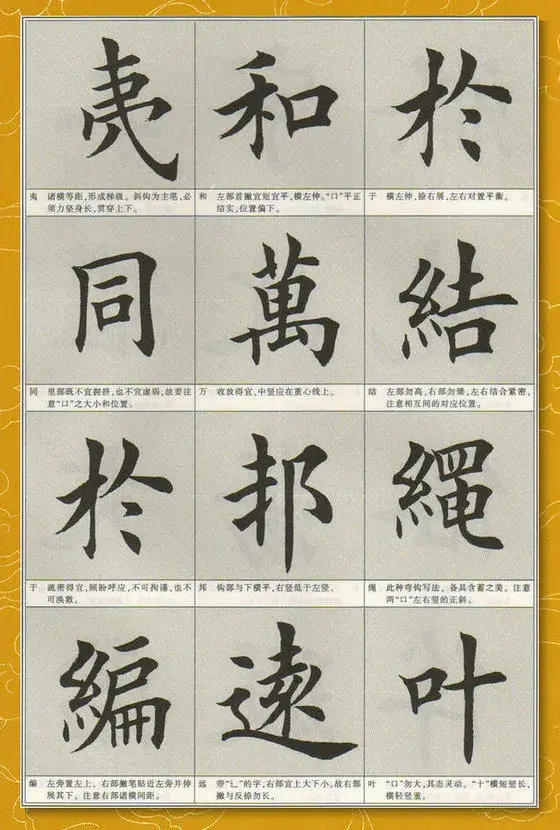 夷 和 於
夷 诸横等距，形成梯级。斜钩为主笔，必
须力坚身长，贯穿上下。
和 左部首撇宜短宜平，横左伸。“口”平正
结实，位置偏下。
于 横左伸，捺右展，左右对置平衡。
同 萬 結
同 里部既不宜拥挤，也不宜虚弱，故要注
意“口”之大小和位置。
万 收放得宜，中竖应在重心线上。
结 左部勿高，右部勿矮，左右结合紧密，
注意相互间的对应位置。
於 邦 繩
于 疏密得宜，顾盼呼应，不可拘谨，也不
可涣散。
邦 钩部与下横平，右竖低于左竖。
绳 此种弯钩写法，备具含蓄之美。注意
两“口”左右竖的正斜。
編 遠 叶
编 左旁置左上，右部撇笔贴近左旁并伸
展其下。注意右部诸横间距。
远 带“辶”的字，右部宜上大下小。故右部
撇与反捺勿长。
叶 “口”勿大，其态灵动。“十”横短竖长，
横轻竖重。